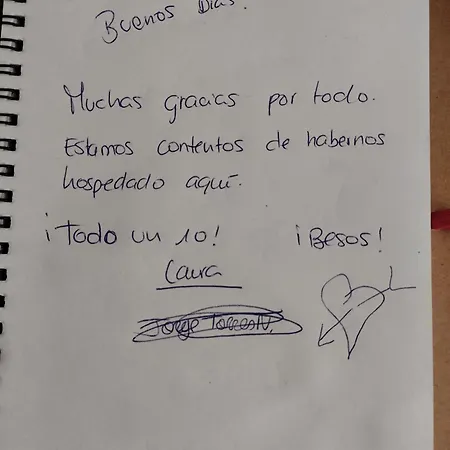 Buenos Días!
Muchas gracias por todo.
Estamos contentos de habernos
hospedado aquí.
¡Todo un 10! ¡Besos!
Laura
Jorge